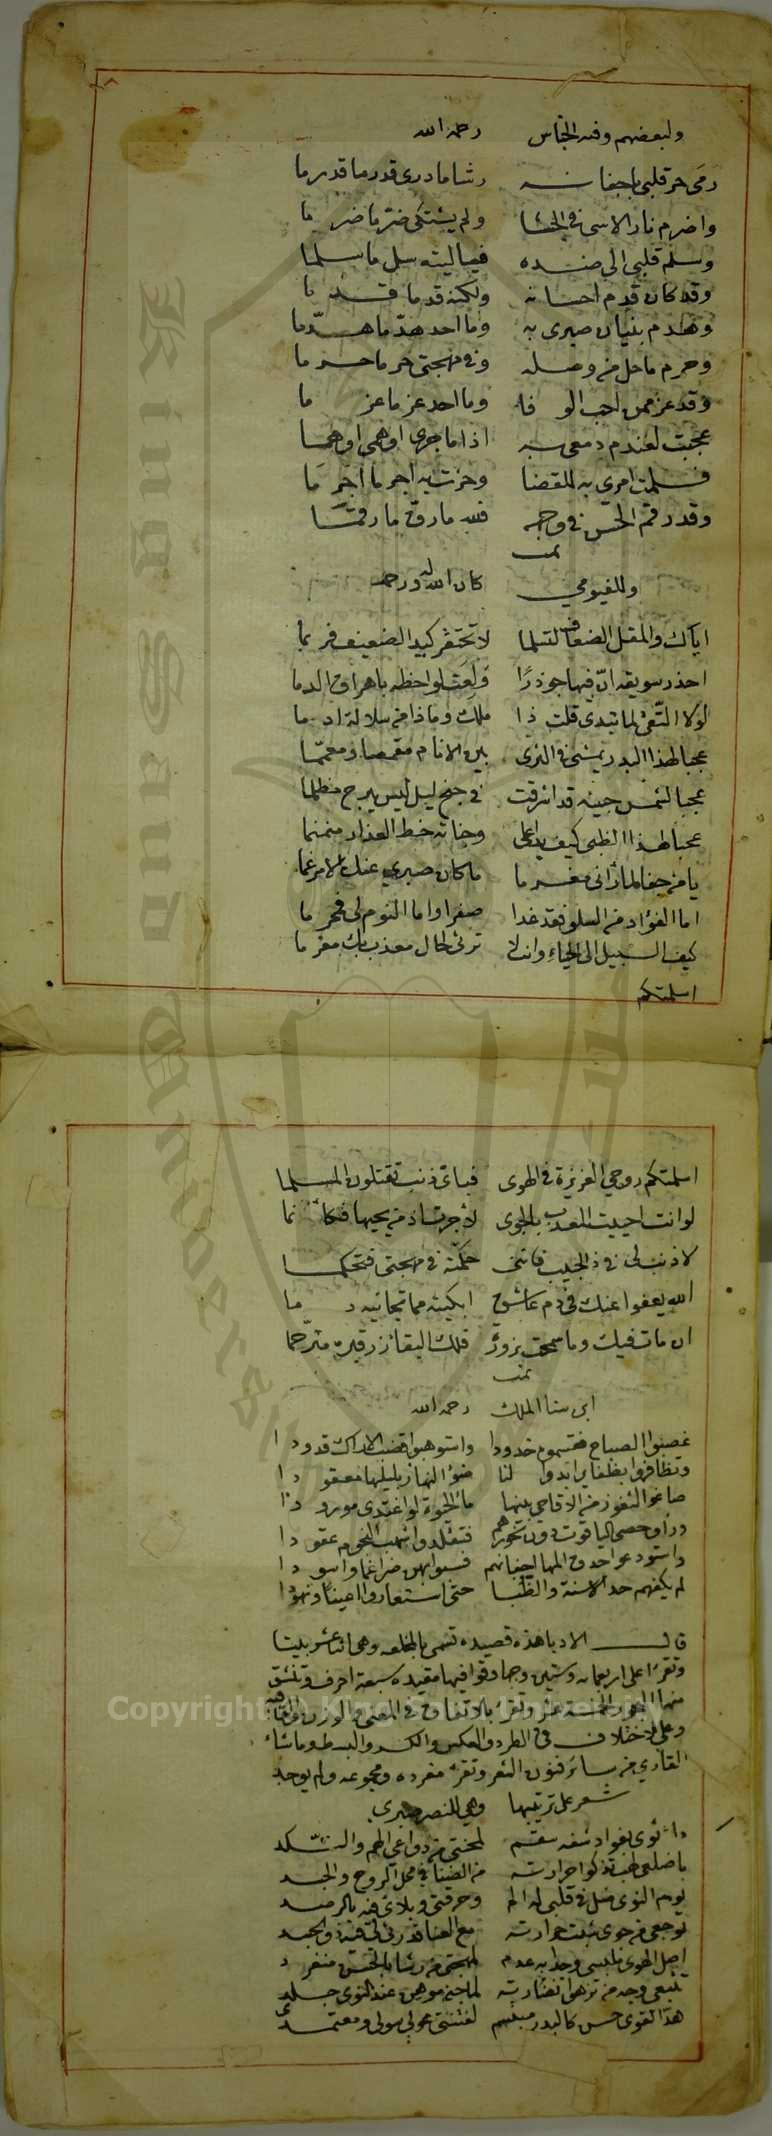 ولبعضهم وفيه الجناس رحمه الله
رمى حر قلبي باجفانه رشا ما درى قدر ما قد رما
واضرم نار الاسى في الحشا ولم يشتكي ضر ما ضرما
وسلم قلبي الى صده فيا ليته سل ما سلما
وقد كان قدم احسانه ولكنه قد ما قدما
وهدم بنيان صبري به وما احد هد ما هدما
وحرم ما حل من وصله وفي مهجتي حر ما حرما
وقد عز ممن احب الوفا وما احد عز ما عزما
عجبت لعندم دمعي به اذا ما جرى او همى اوهما
فسلمت امري به للقضا وحزت به اجر ما اجرما
وقد رقم الحسن في وجهه فلله ما رق ما رقما
تمت
وللفيومي كان الله له ورحمه
اياك والمقل الضعاف لتسلما لا تحتقر كيد الضعيف فربما
احذر سويقه ان فيها جوذرا ولعت لواحظه باهراق الدما
لولا التقى لما تبدى قلت ذا ملك وماذا من سلالة ادما
عجبا لهذا البدر يمشي في الثرى بين الانام مقمصا ومعمما
عجبا لشمس جبينه قد اشرقت في جنح ليل ليس يبرح مظلما
عجبا لهذا الظبي كيف بدا على وجناته خط العذار منمنما
يا من جفا لما رآني مغرما ما كان صبري عنك الا مرغما
اما الفؤاد من السلو فقد غدا صفرا واما النوم لي فمحرما
كيف السبيل الى الحياء وانت لا ترثي لحال معذب بك مغرما
اسلمتكم
اسلمتكم روحي العزيزة في الهوى فباي ذنب تقتلون المسلما
لو انت احييت المعذب بالجوى لاجرت اذ من يحييها فكانما
لا ذنب لي في ذ الحبيب فانني حكمته في مهجتي فتحكما
الله يعفوا عنك في دم عاشق ابكيته مما تجانبه دما
ان مات فيك وما سمحت بزورة فلك البقا زر قبره مترحما
تمت
ابن سنا الملك رحمه الله
غصبوا الصباح فقسموه خدودا واستوهبوا قضب الاراك قدودا
وتظافروا بظفاير ابدوا لنا ضوء النهار بليلها معقودا
صاغوا الثغور من الاقاحي بينها ماء الحيوة لو اغتدى مورودا
وراو حصى الياقوت دون نحورهم فتقلدوا شهب النجوم عقودا
واستودعوا حدق المها اجفانهم فسبوا بهن ضراغما واسودا
لم يكفهم حد الاسنة والظبا حتى استعاروا اعينا ونهودا
قال الادبا هذه قصيده تسمى بالمخلعه وهي اثنا عشر بيتا
وتقرا على اربعمائه وستين وجها وقوافيها مقيده سبعة احرف وتنشق
منها البحور الخمسة عشر وتقرا بالاتفاق في المعنى والوزن والقافيه
وعلى الاختلاف في الطرد والعكس والكسر والبسط وما شاء
القاري من سائر فنون الشعر وتقرء مفرده ومجموعه ولم يوجد
شعر على ترتيبها وهي للنصر مصري
داء ثوى بفواد شفه سقم لمحنتي من دواعي الهم والنكد
باضلعي لهب تذكوا حرارته من الضنا في محل الروح والجسد
يوم النوى ظل في قلبي له الم وحرقتي وبلائي فيه بالرصد
توجعي من جوى شبت حرارته مع العنا قد رثى لي فيه ذو الحسد
اصل الهوى ملبسي وجدا به عدم لمهجتي من رشا بالحسن منفرد
تتبعي وجه من تزهوا نضارته لما جنى موهن عند النوى جلدي
هد القوى حسن كالبدر مبتسم لفتنتي عولي سولي ومعتمدي